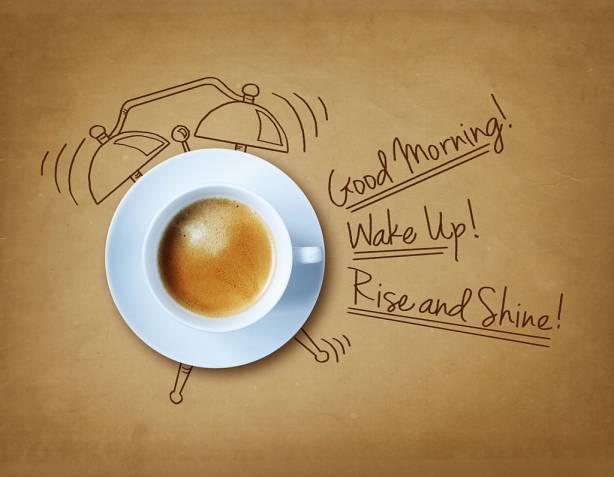 Good Morning!
Wake Up!
Rise and Shine!